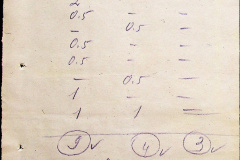 2
0.5 – –
– 0.5 –
0.5 – –
0.5 – –
– 0.5 –
1 – –
1 1 –
9 ✓ 4 ✓ 3 ✓